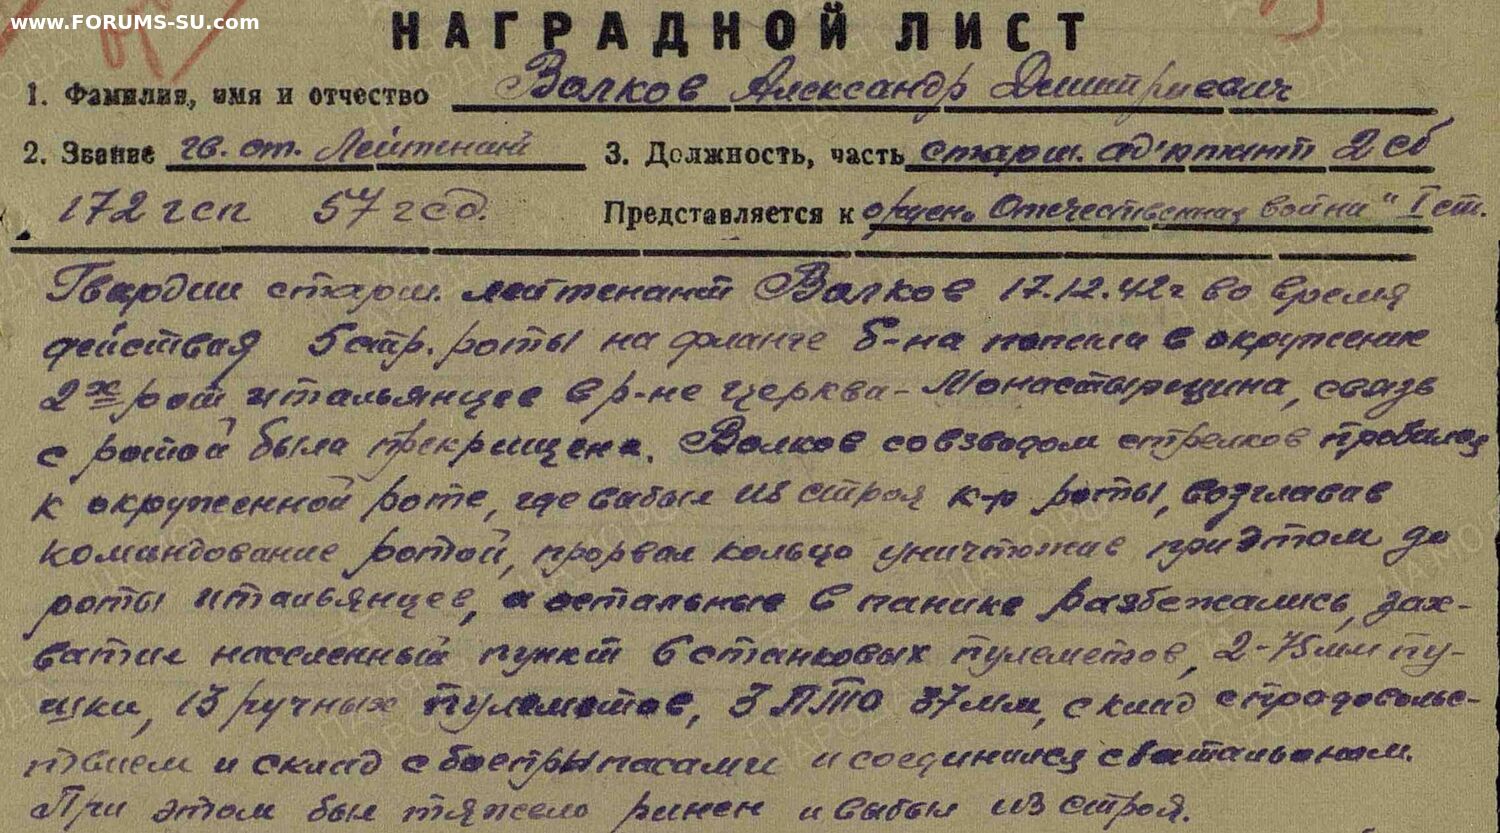 www.FORUMS-SU.com
НАГРАДНОЙ ЛИСТ
1. Фамилия, имя и отчество Волков Александр Дмитриевич
2. Звание гв. ст. Лейтенант 3. Должность, часть старш. ад'ютант 2 сб
172 гсп 57 гсд. Представляется к орден. Отечественная война" I ст.
Гвардии старш. лейтенант Волков 17.12.42г во время
действия 5 стр. роты на фланге б-на попала в окружение
2х рот итальянцев в р-не церква-Монастырщина, связь
с ротой была прекращена. Волков со взводом стрелков пробился
к окруженной роте, где выбыл из строя к-р роты, возглавив
командование ротой, прорвал кольцо уничтожив при этом до
роты итальянцев, а остальные в панике разбежались, зах-
ватив населенный пункт 6 станковых пулеметов, 2-75мм пу-
шки, 13 ручных пулеметов, 3 ПТО 37мм, склад с продовольс-
твием и склад с боеприпасами и соединился с батальоном.
При этом был тяжело ранен и выбыл из строя.